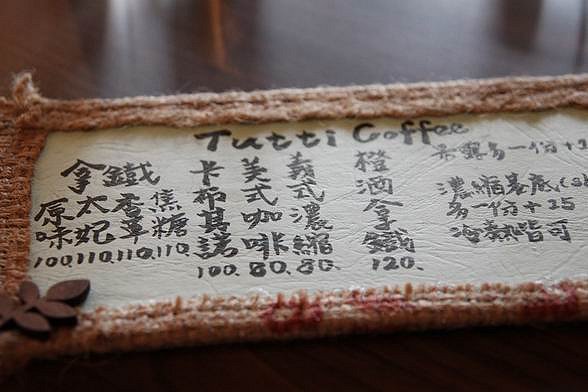 Tutti Coffee
拿鐵
原味
太妃
香草
焦糖
100.110.110.110.
卡布其諾
100.
美式咖啡
80.
義式濃縮
80.
橙酒拿鐵
120.
多一份+
濃縮基底
多一份+25
冷熱皆可